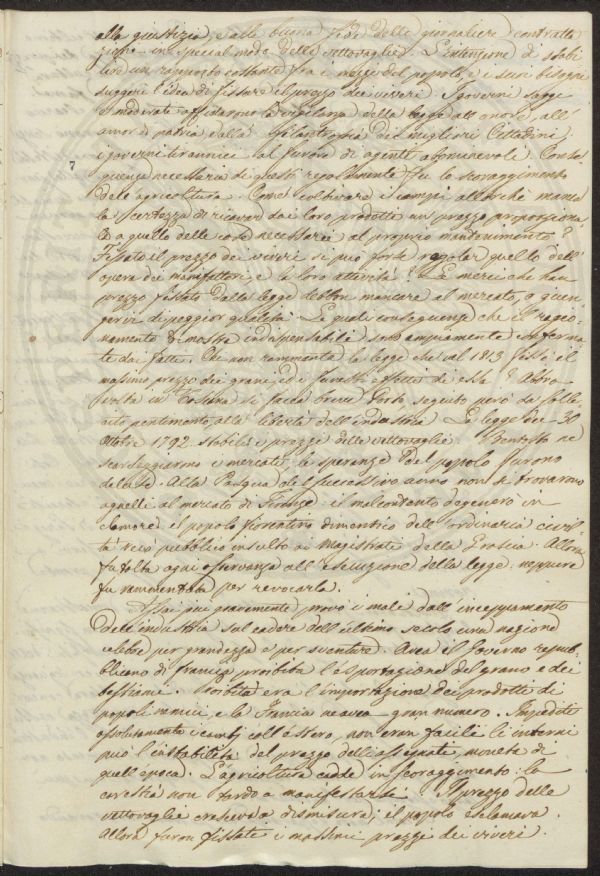 alla giustizia, e alla buona fede delle giornaliere contratta
zioni in special modo delle vettovaglie. L'intenzione di stabi
lire un rapporto costante fra i mezzi del popolo, e i suoi bisogni
suggerì l'idea di fissare il prezzo dei viveri. I governi saggi
e moderati affidarono la vigilanza della legge all'onore, all'
amor di patria dalla filantropia dei migliori Cittadini;
i governi tirannici al furore di agenti abominevoli. Conse
7
guenza necessaria di questi regolamenti fu lo scoraggimento
dell'agricoltura. Come coltivare i campi allorchè manca
la certezza di ricavar dai loro prodotti un prezzo proporziona
to a quello delle cose necessarie al proprio mantenimento?
Fissato il prezzo dei viveri si può forse regolar quello dell'
opera dei manifattori, e la loro attività? Le merci che han
prezzo fissato dalla legge debbon mancare al mercato, o
di peggior qualità. Le quali conseguenze che il ragio
namento dimostra indispensabili sono ampiamente conferma
te dai fatti. Chi non rammenta la legge che nel 1813 fissò il
massimo prezzo dei grani, ed i funesti effetti di essa? Abro
gata in Toscana si facea breve tosto seguito però da solle
cito pentimento, alla libertà dell'industria. La legge dei 30
Ottobre 1792 stabilì i prezzi delle vettovaglie. Bentosto ne
scarseggiarono i mercati, le speranze del popolo furono
deluse. Alla Pasqua del successivo anno non si trovarono
agnelli al mercato di Firenze: il malcontento degenerò in
clamore: il popolo fiorentino dimentico dell'ordinaria civil
tà recò pubblico insulto ai Magistrati della Grascia. Allora
fu tolta ogni osservanza all'esecuzione della legge: neppure
fu rammentata per revocarla.
Assai più gravemente provò i mali dall'inceppamento
dell'industria sul cadere dell'ultimo secolo una nazione
celebre per grandezza e per sventure. Avea il Governo repub
blicano di Francia proibita l'esportazione del grano e dei
bestiami. Proibita era l'importazione dei prodotti di
popoli nemici, e la Francia ne avea gran numero. Impedite
assolutamente i cambj coll'estero, non eran facili li interni
per l'instabilità del prezzo dell'assegnati, moneta di
quell'epoca. L'agricoltura cadde in scoraggimento: la
carestia non tardò a manifestarsi. Il prezzo delle
vettovaglie cresceva a dismisura; il popolo esclamava.
Allora furon fissati i massimi prezzi dei viveri.